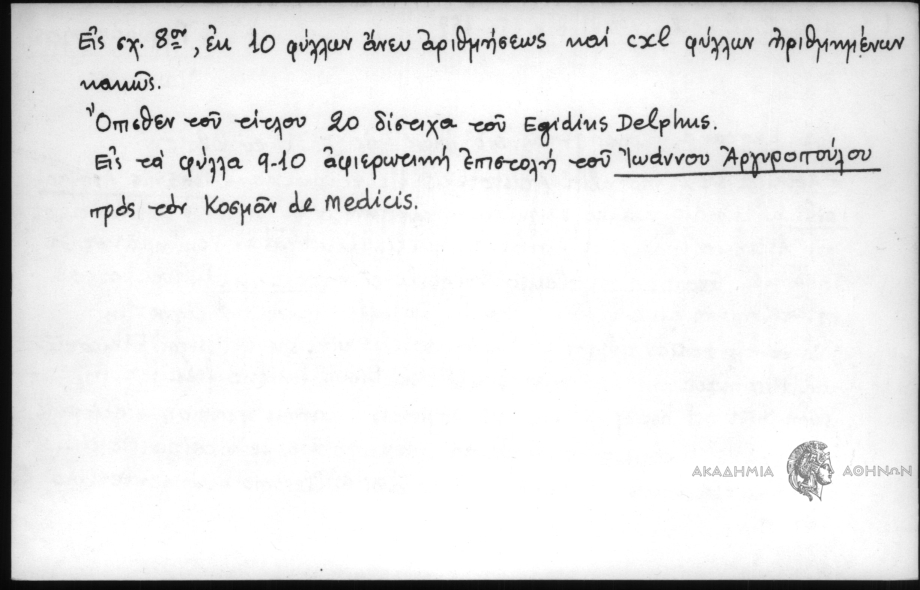 Εἰς σχ. 8ον, ἐκ 10 φύλλων ἄνευ ἀριθμήσεως καί cxl φύλλων ἠριθμημένων
κακῶς.
Ὄπισθεν τοῦ τίτλου 20 δίστιχα τοῦ Egidius Delphus.
Εἰς τά φύλλα 9-10 ἀφιερωτική ἐπιστολή τοῦ Ἰωάννου Ἀργυροπούλου
πρός τόν Κοσμᾶν de Medicis.
ΑΚΑΔΗΜΙΑ ΑΘΗΝΩΝ